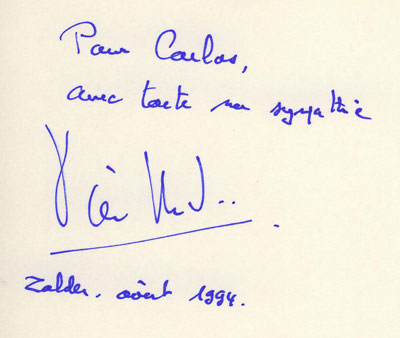 Pour Carlos,
avec toute ma sympathie
Zolder. août 1994.